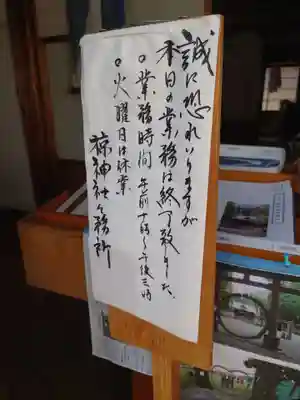 誠に恐れいりますが
本日の業務は終了致しました、
○業務時間 午前十時〜午後三時
○火曜日は休業
椋神社々務所